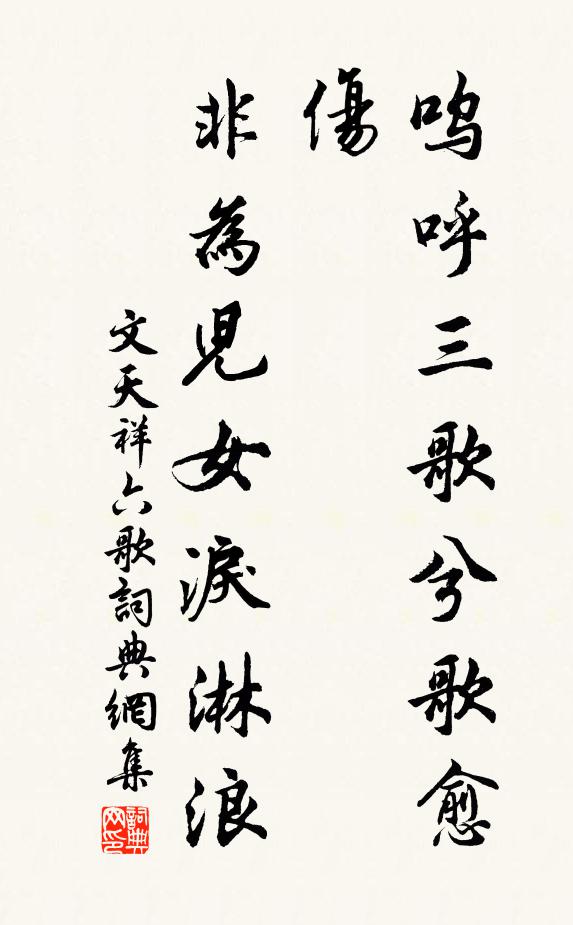 嗚呼三歌兮歌愈
傷
非為児女淚淋浪
文天祥六歌詞典網集
詞典網印